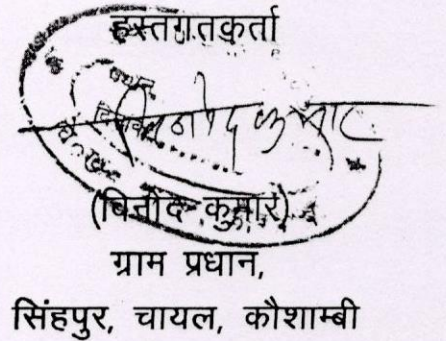 हस्तगतकर्ता
विनोद कुमार
(विनोद कुमार)
ग्राम प्रधान,
सिंहपुर, चायल, कौशाम्बी